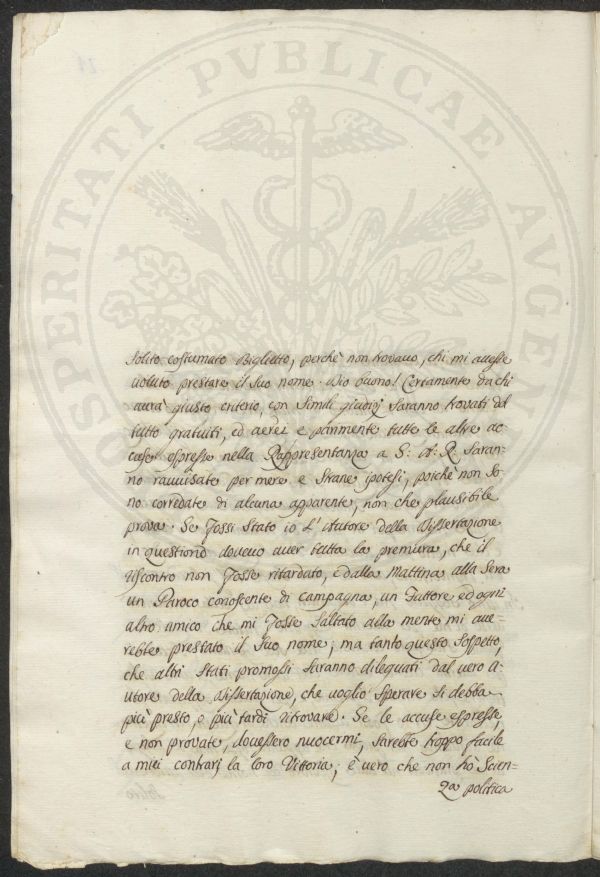 PROSPERITATI PVBLICAE AVGEN
solito costumato Biglietto, perchè non trovavo, chi mi avesse
voluto prestare il suo nome. Dio buono! Certamente da chi
aurà giusto criterio, con simili giudizj saranno trovati del
tutto gratuiti, ed aerei e parimente tutte le altre ac-
cuse espresse nella Rappresentanza a S: A: R. Saran-
no ravvisate per mere e strane ipotesi, poichè non so-
no corredate di alcuna apparente, non che plausibile
prova. Se fossi stato io l'Autore della Dissertazione
in questione dovevo aver tutta la premura, che il
riscontro non fosse ritardato, e dalla mattina alla sera
un Paroco conoscente di campagna, un Fattore ed ogni
altro amico che mi fosse saltato alla mente mi ave-
rebbe prestato il suo nome; ma tanto questo sospetto,
che altri stati promossi saranno dileguati dal vero A-
utore della Dissertazione, che voglio sperare si debba
più presto, o più tardi ritrovare. Se le accuse espresse,
e non provate, dovessero nuocermi, sarebbe troppo facile
a miei contrarj la loro Vittoria; è vero che non hò Scien-
za politica